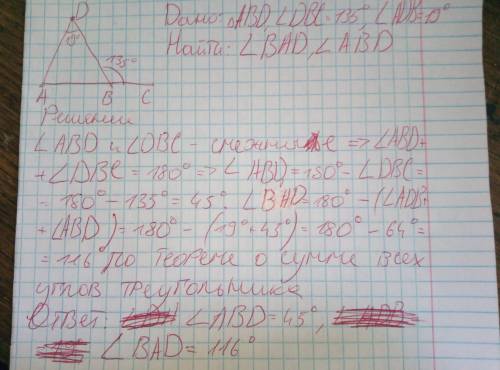 D
19°
135°
A B C
Дано: △ABD, ∠DBC=135°, ∠ADB=19°
Найти: ∠BAD, ∠ABD
Решение
∠ABD и ∠DBC - смежные => ∠ABD+
+∠DBC = 180° => ∠ABD = 180° - ∠DBC =
= 180° - 135° = 45°. ∠BAD = 180° - (∠ADB+
+∠ABD) = 180° - (19° + 45°) = 180° - 64° =
= 116° по теореме о сумме всех
углов треугольника
Ответ: ∠ABD = 45°,
∠BAD = 116°